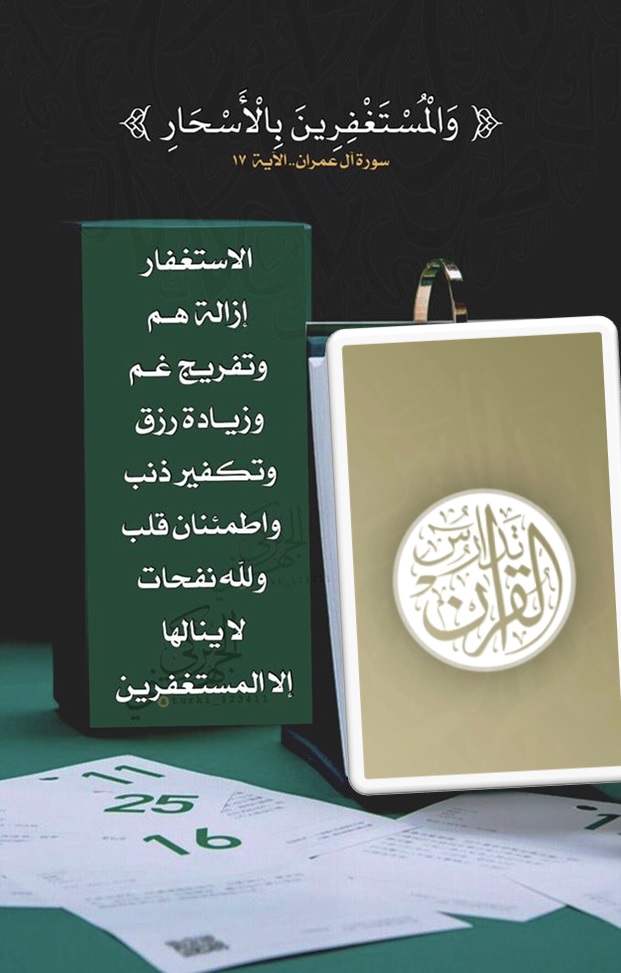 ﴿ وَالْمُسْتَغْفِرِينَ بِالْأَسْحَارِ ﴾
سورة آل عمران..الآية ١٧
الاستغفار
إزالة هم
وتفريج غم
وزيادة رزق
وتكفير ذنب
واطمئنان قلب
ولله نفحات
لا ينالها
إلا المستغفرين
تدارس
القرآن
11
25
16